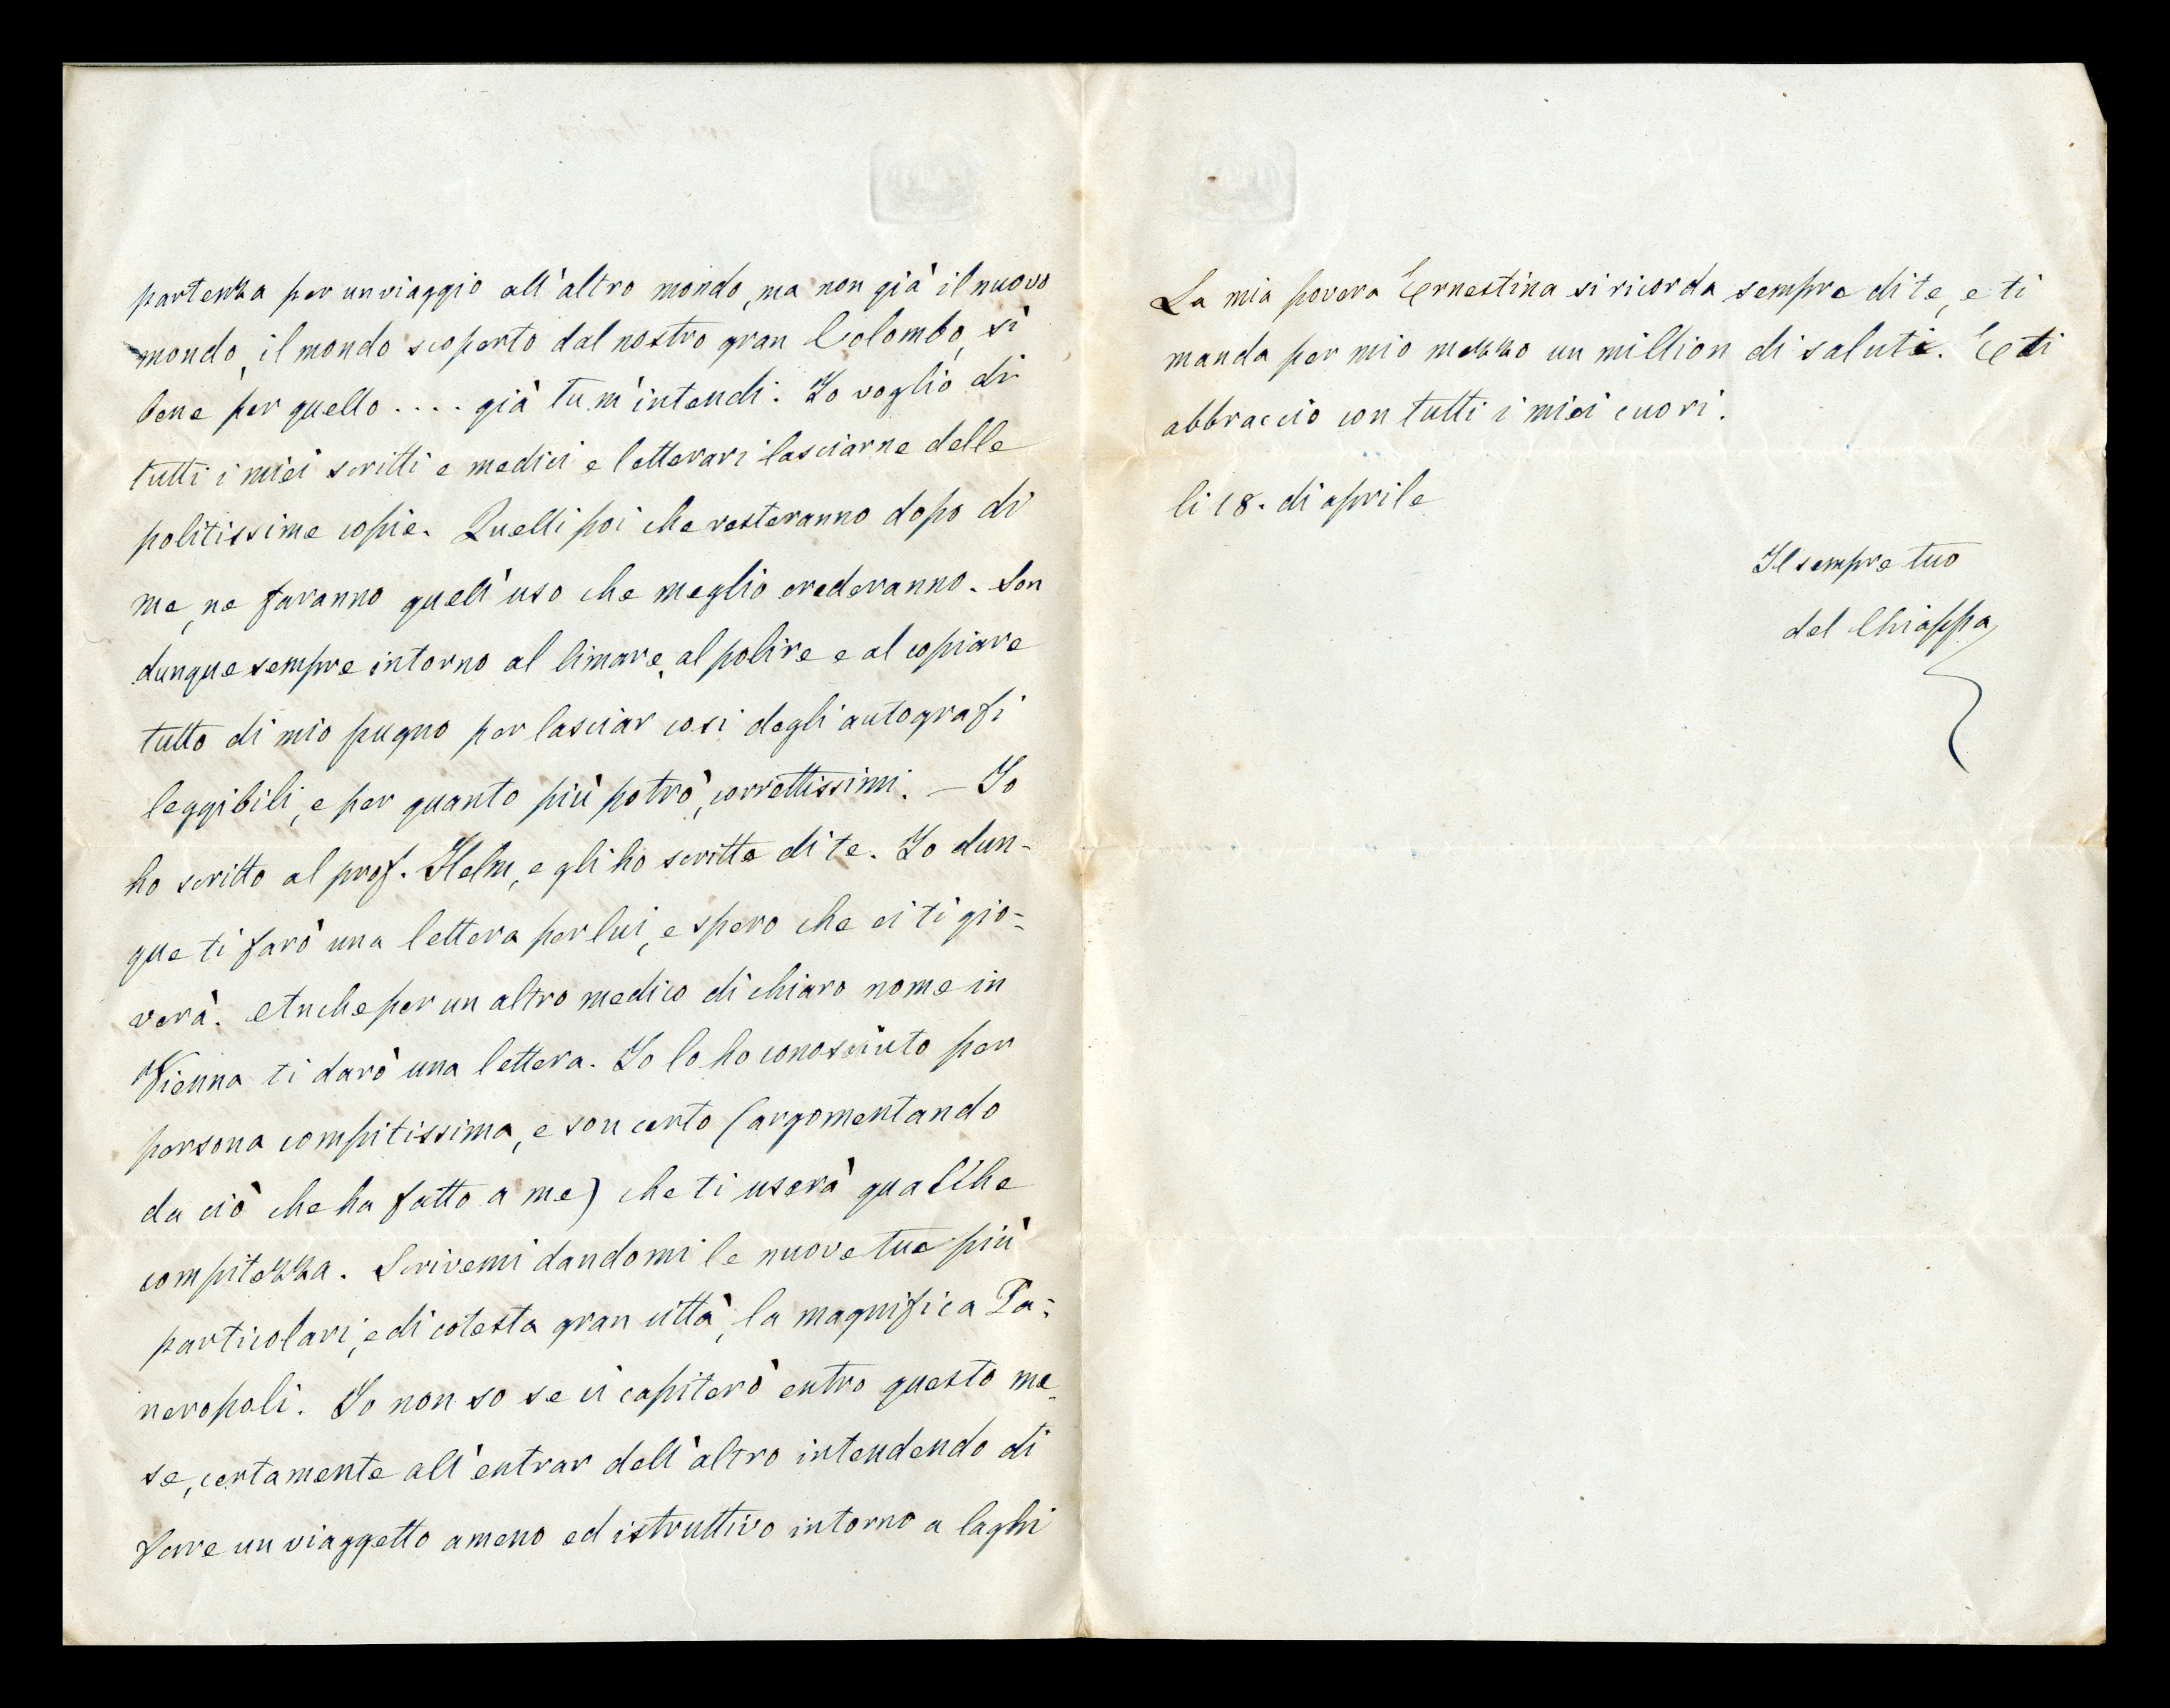 partenza per un viaggio all'altro mondo, ma non già il nuovo
mondo, il mondo scoperto dal nostro gran Colombo, sì
bene per quello .... già tu m'intendi. Io voglio di
tutti i miei scritti e medici e letterari lasciarne delle
politissime copie. Quelli poi che resteranno dopo di
me, ne faranno quell'uso che meglio crederanno. Son
dunque sempre intorno al limare, al polire e al copiare
tutto di mio pugno per lasciar così degli autografi
leggibili, e per quanto più potrò, correttissimi. — Io
ho scritto al prof. Helm, e gli ho scritto di te. Io dun-
que ti farò una lettera per lui, e spero che ei ti gio-
verà. Anche per un altro medico di chiaro nome in
Vienna ti darò una lettera. Io lo ho conosciuto per
persona compitissima, e son certo (argomentando
da ciò che ha fatto a me) che ti userà qualche
compitezza. Scrivemi dandomi le nuove tue più
particolari, e di cotesta gran città, la magnifica Pa-
neropoli. Io non so se ci capiterò entro questo me-
se, certamente all'entrar dell'altro intendendo di
fare un viaggetto ameno ed istruttivo intorno a laghi
La mia povera Ernestina si ricorda sempre di te, e ti
manda per mio mezzo un million di saluti. E ti
abbraccio con tutti i miei cuori.
li 18. di aprile
Il sempre tuo
del Chiappa